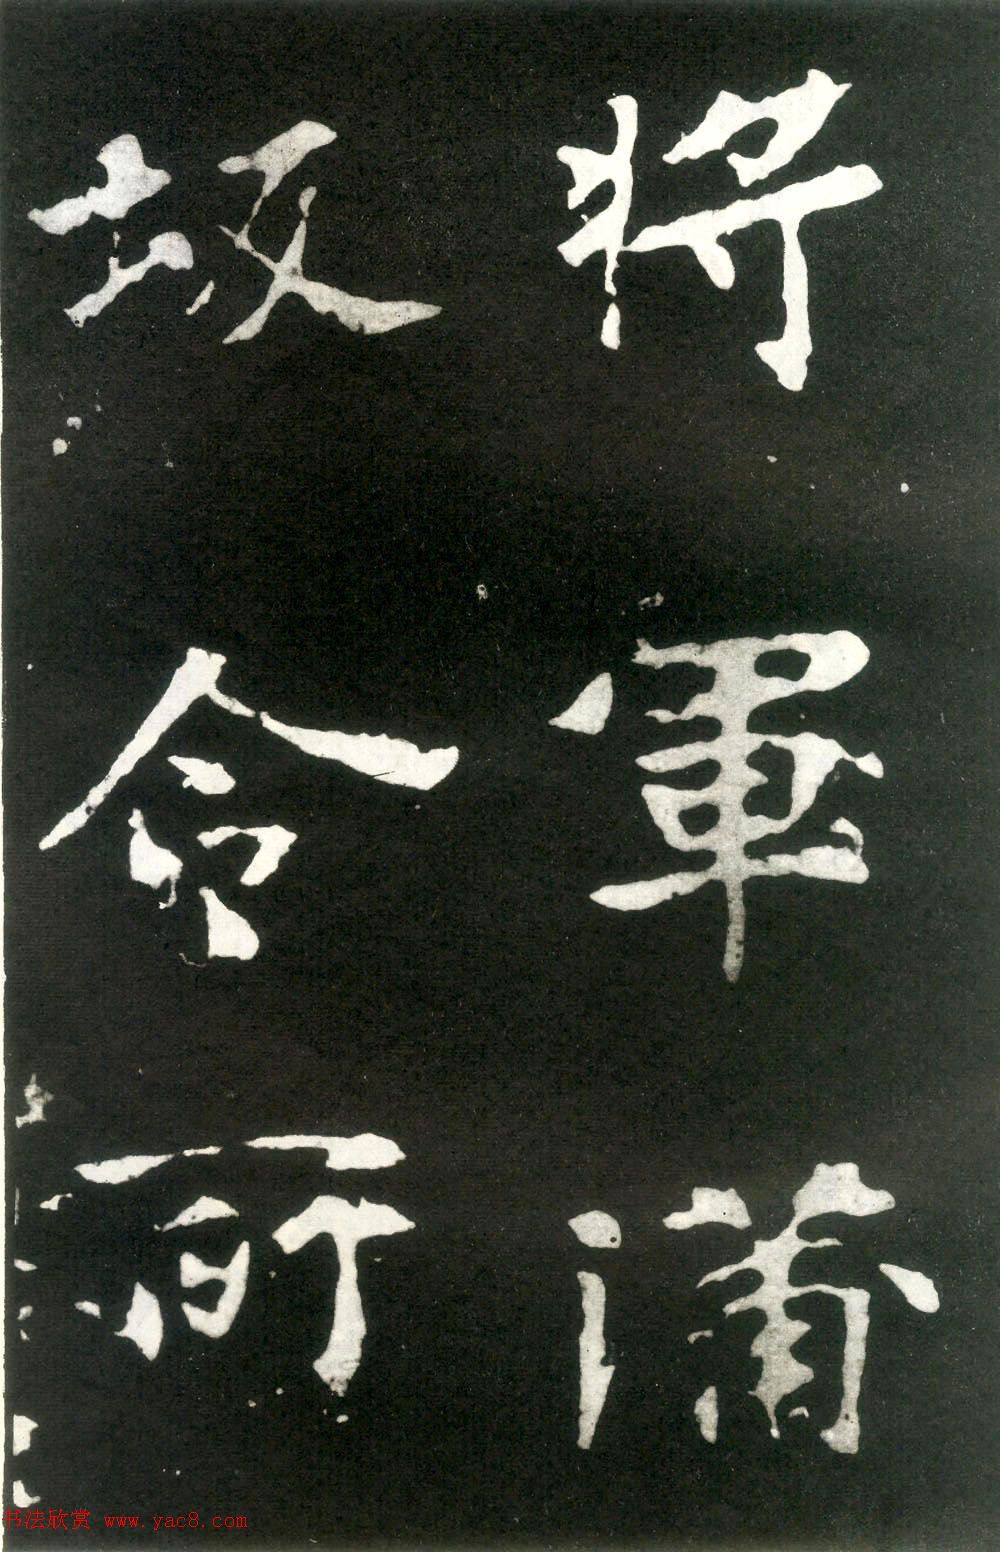 將軍蒲
坂令所
书法欣赏 www.yac8.com